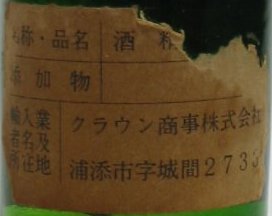 称・品名 酒精
添加物
輸入業者名及所在地 クラウン商事株式会社
浦添市字城間273